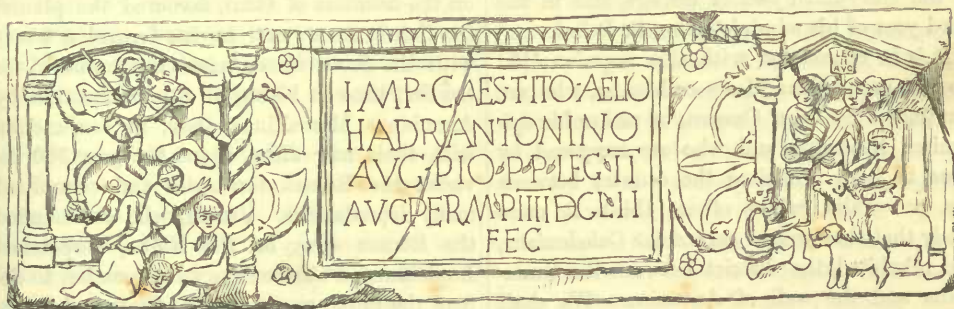 IMP·CAES·TITO·AELIO
HADRI·ANTONINO
AVG·PIO·P·P·LEG·II
AVG·PER·M·P·IIIIDCLII
FEC
LEG
II
AVG